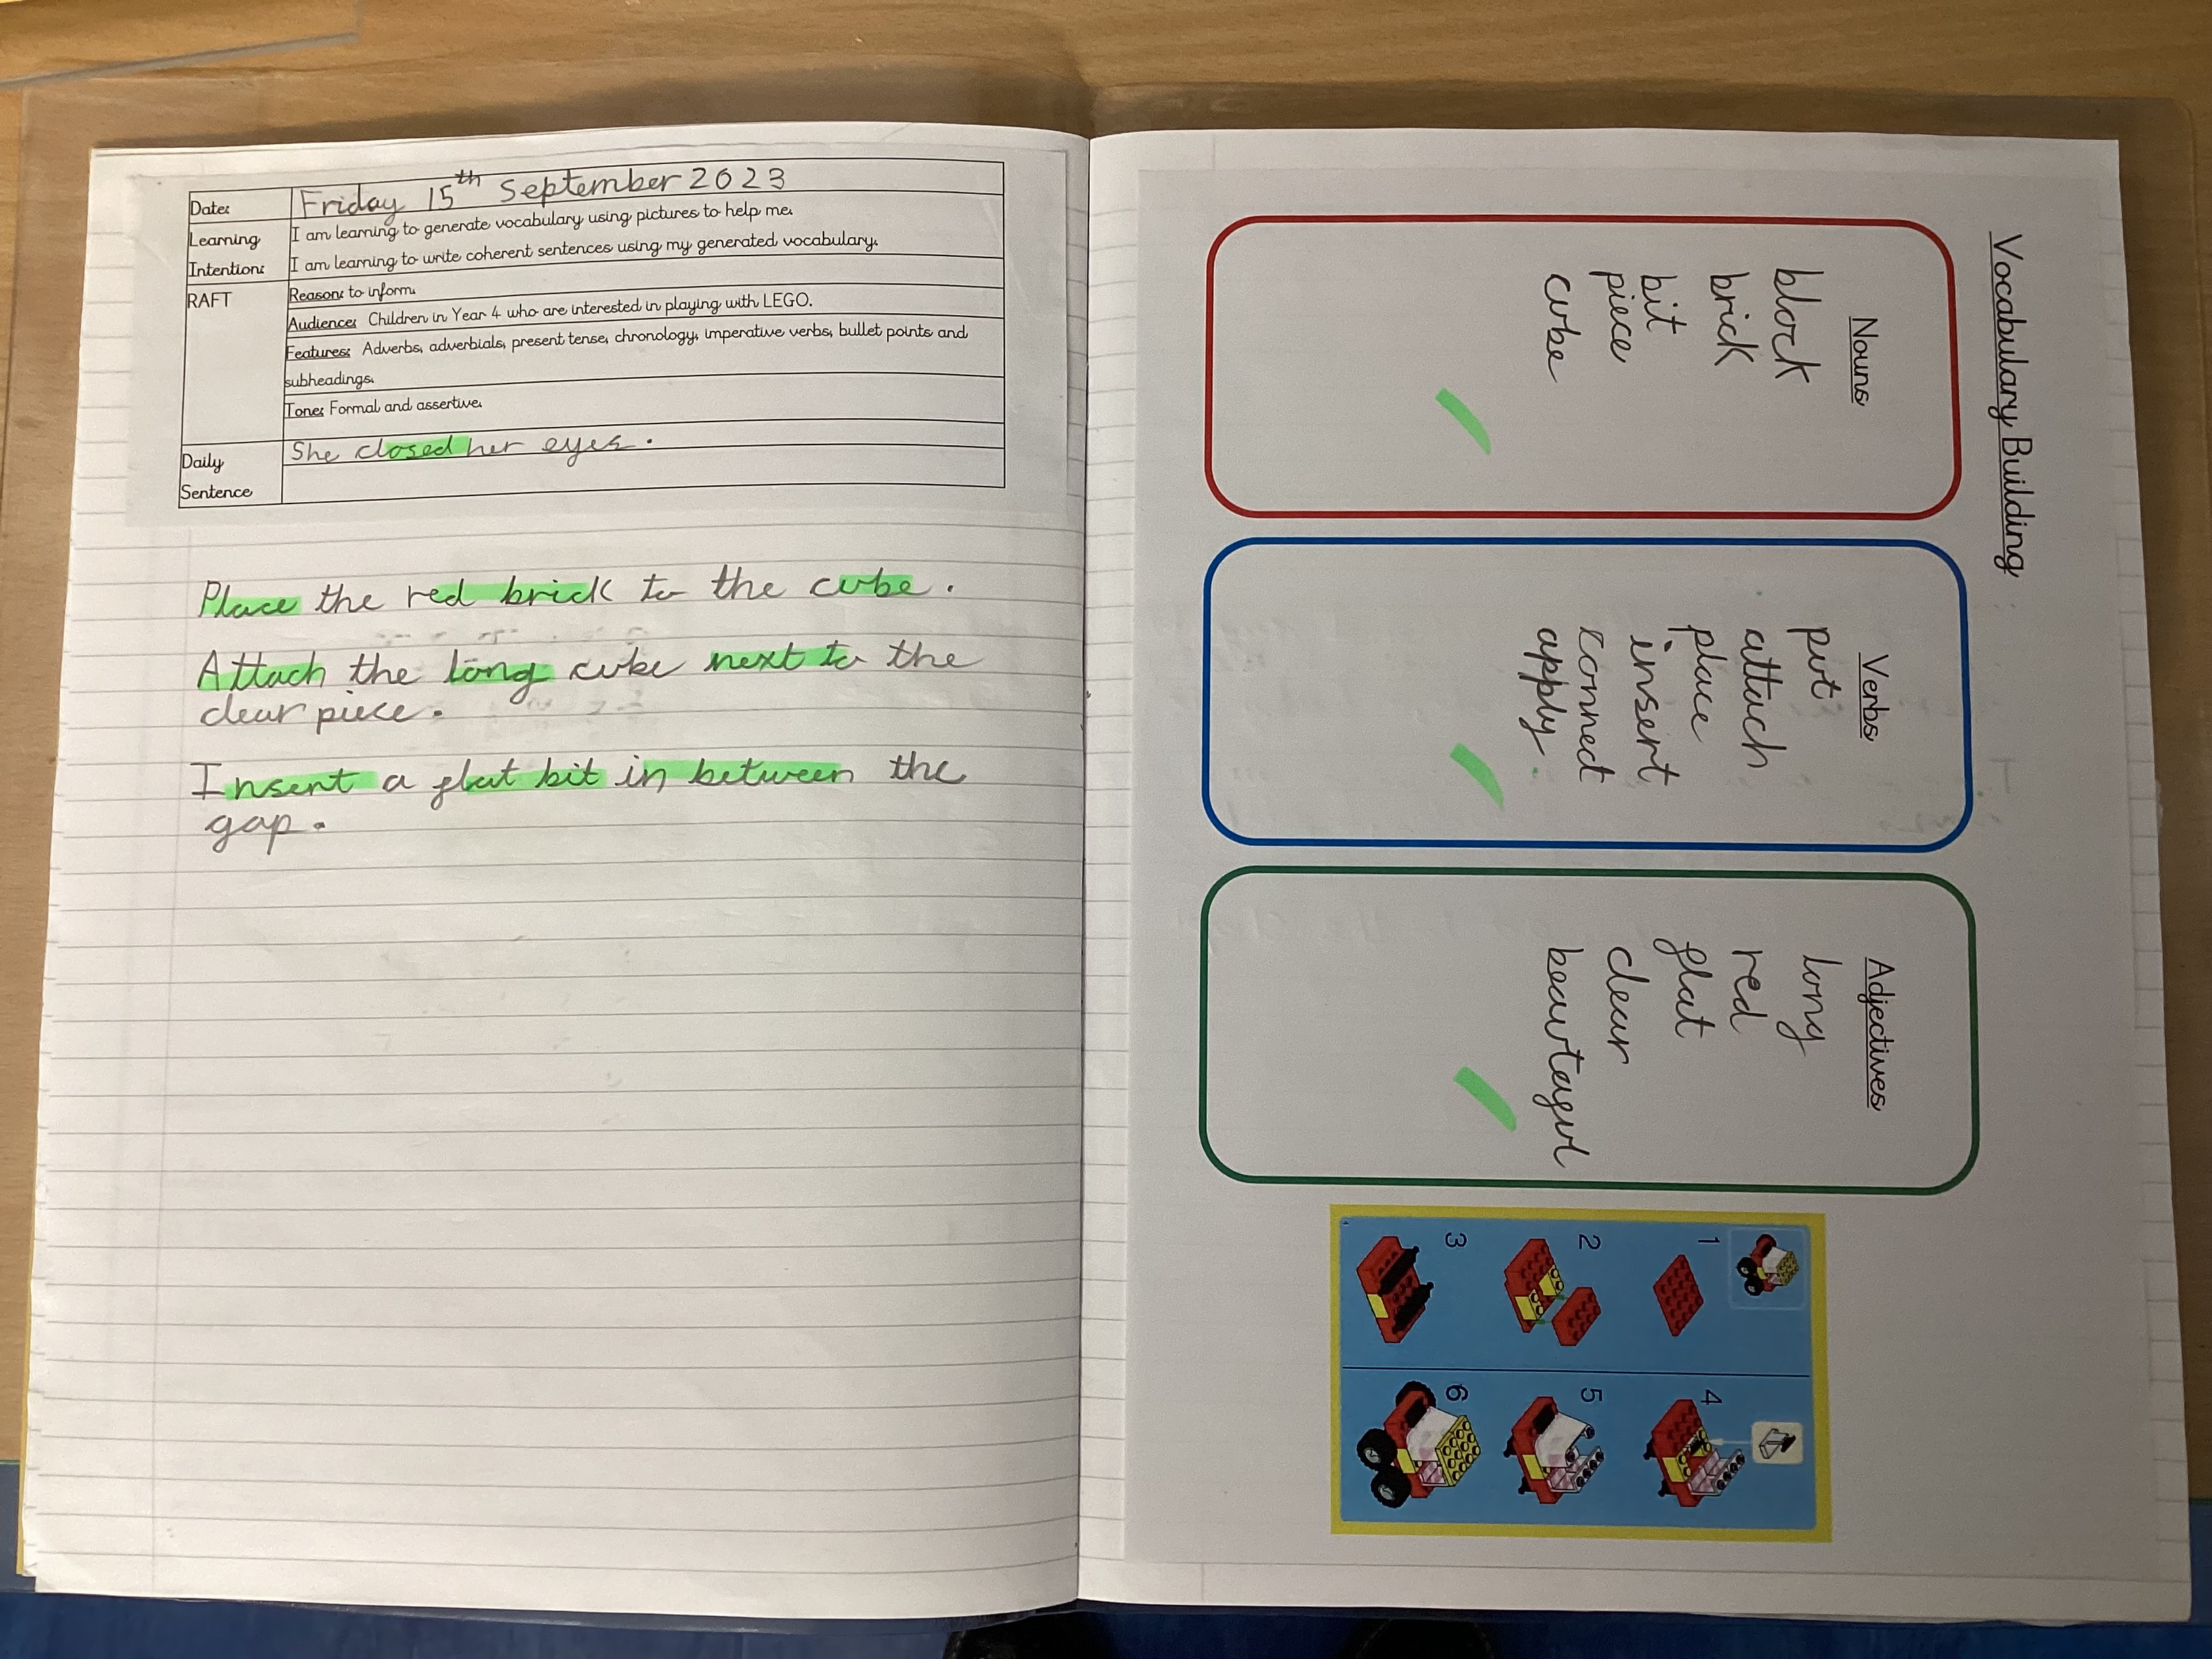 Date: Friday 15th September 2023
Learning Intention: I am learning to generate vocabulary using pictures to help me.
I am learning to write coherent sentences using my generated vocabulary.
RAFT Reason: to inform.
Audience: Children in Year 4 who are interested in playing with LEGO.
Features: Adverbs, adverbials, present tense, chronology, imperative verbs, bullet points and
subheadings.
Tone: Formal and assertive.
Daily Sentence She closed her eyes.
Place the red brick to the cube.
Attach the long cube next to the
clear piece.
Insert a flat bit in between the
gap.
Vocabulary Building
Nouns
block
brick
bit
piece
cube
Verbs
put
attach
place
insert
connect
apply.
Adjectives
long
red
flat
clear
beautaful
1
2
3
4
5
6